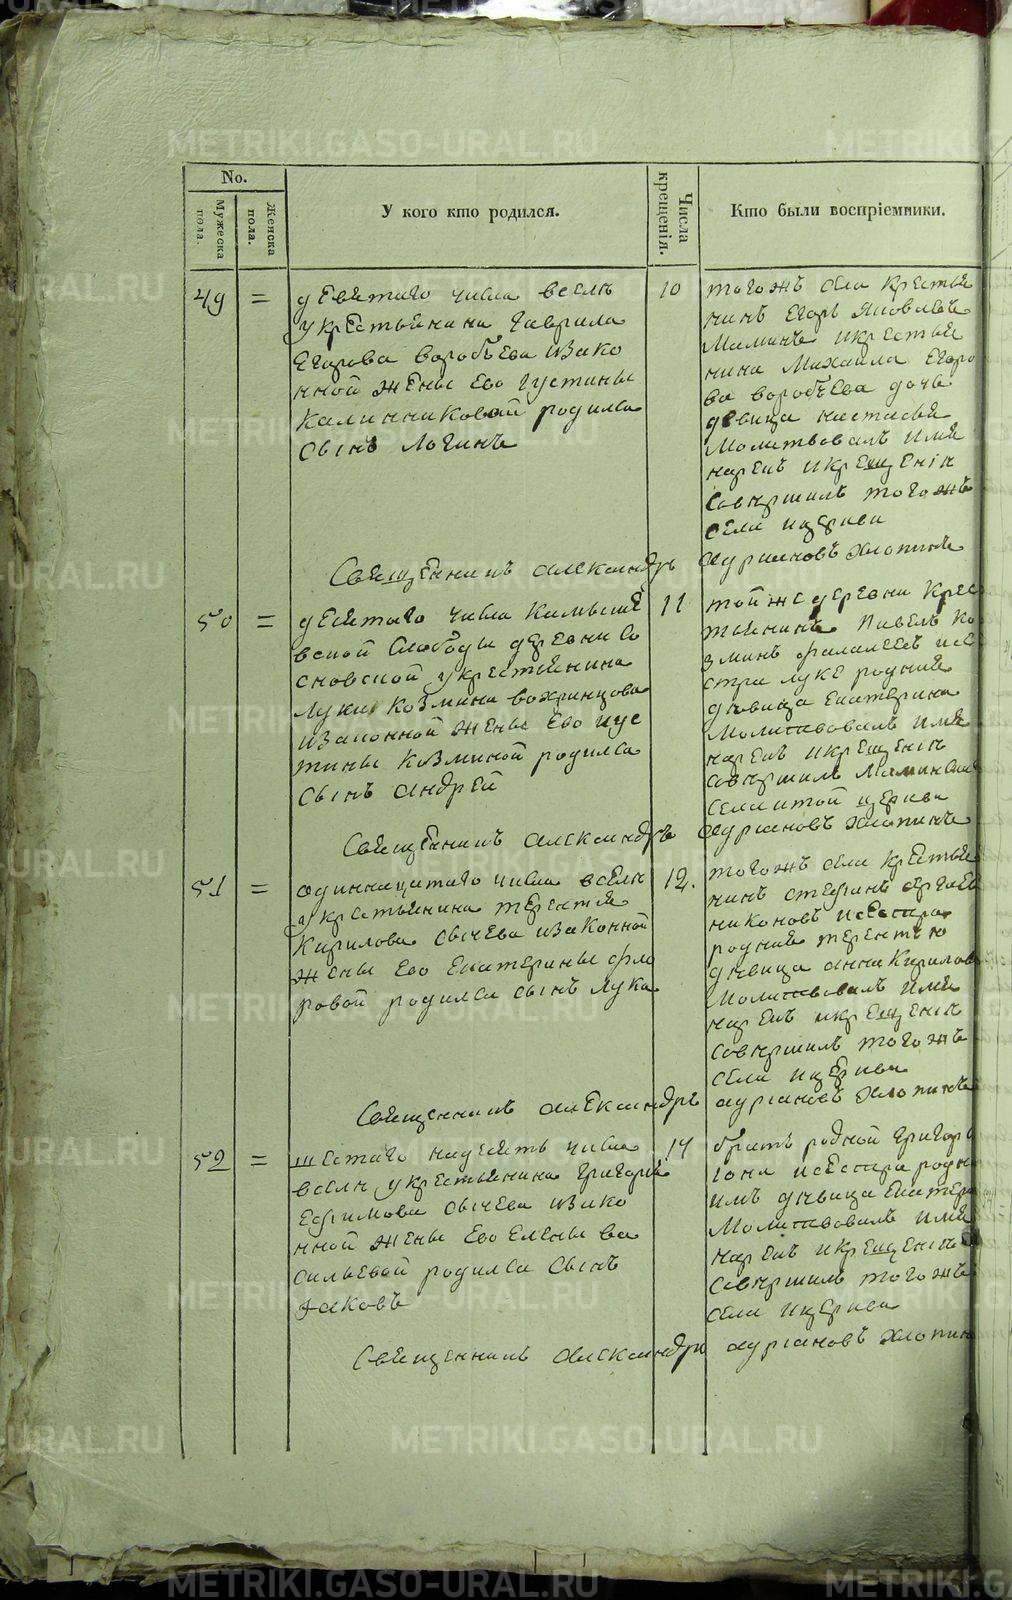 No.
Мужеска пола.
Женска пола.
У кого кто родился.
Числа крещенія.
Кто были воспріемники.
49 =
девятаго числа вселѣ
укрестьянина Гаврила
Егорова воробьева изако
нной жены Его Густины
Калинниковой родился
Сынъ Логинъ
10
тогожъ села крестья
нинъ Егоръ Яковлевъ
Маминъ икрестья
нина Михаила Егоро
ва воробьева дочь
девица настасья
Молитвовалъ имя
нарекъ икрещеніи
совершилъ тогожъ
села ицеркви
Священникъ александръ адріановъ хлопинъ
50 =
десятаго числа Камыше
вской Слободы деревни Со
сновской укрестьянина
Луки Козмина вохринцова
изаконной жены Его иус
тины Козминой родился
Сынъ андрей
11
той же деревни крес
тьянинъ Павелъ Ко
зминъ фалалеевъ исе
стра луке родная
девица екатерина
Молитвовалъ имя
нарекъ икрещеніи
совершилъ Маминска
села итой церкви
Священникъ александръ адріановъ хлопинъ
51 =
одиннацатаго числа вселѣ
укрестьянина терентія
Кирилова Сычева изаконной
жены Его Екатерины фло
ровой родился сынъ лука
12.
тогожъ села крестья
нинъ стефанъ сергѣев
никоновъ исестра
родная терентію
девица анна Кирилов
Молитвовалъ имя
нарекъ икрещеніи
совершилъ тогожъ
села ицеркви
Священникъ александръ адріановъ хлопинъ
52 =
шестаго надесять числа
вселѣ укрестьянина Григорья
Ефимова Сычева изако
нной жены Его Елены ва
сильевой родился Сынъ
яковъ
17
братъ родной Григор
іона исестра родн
имъ девица Екатери
Молитвовалъ имя
нарекъ икрещеніи
совершилъ тогожъ
села ицеркви
Священникъ александръ адріановъ хлопин
METRIKI.GASO-URAL.RU